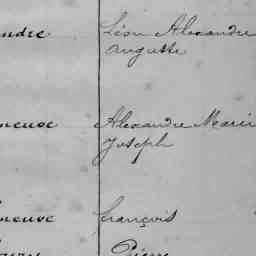 ndre Léon Alexandre
Auguste
neuse Alexandre Marie
Joseph
neuse françois
Pierre